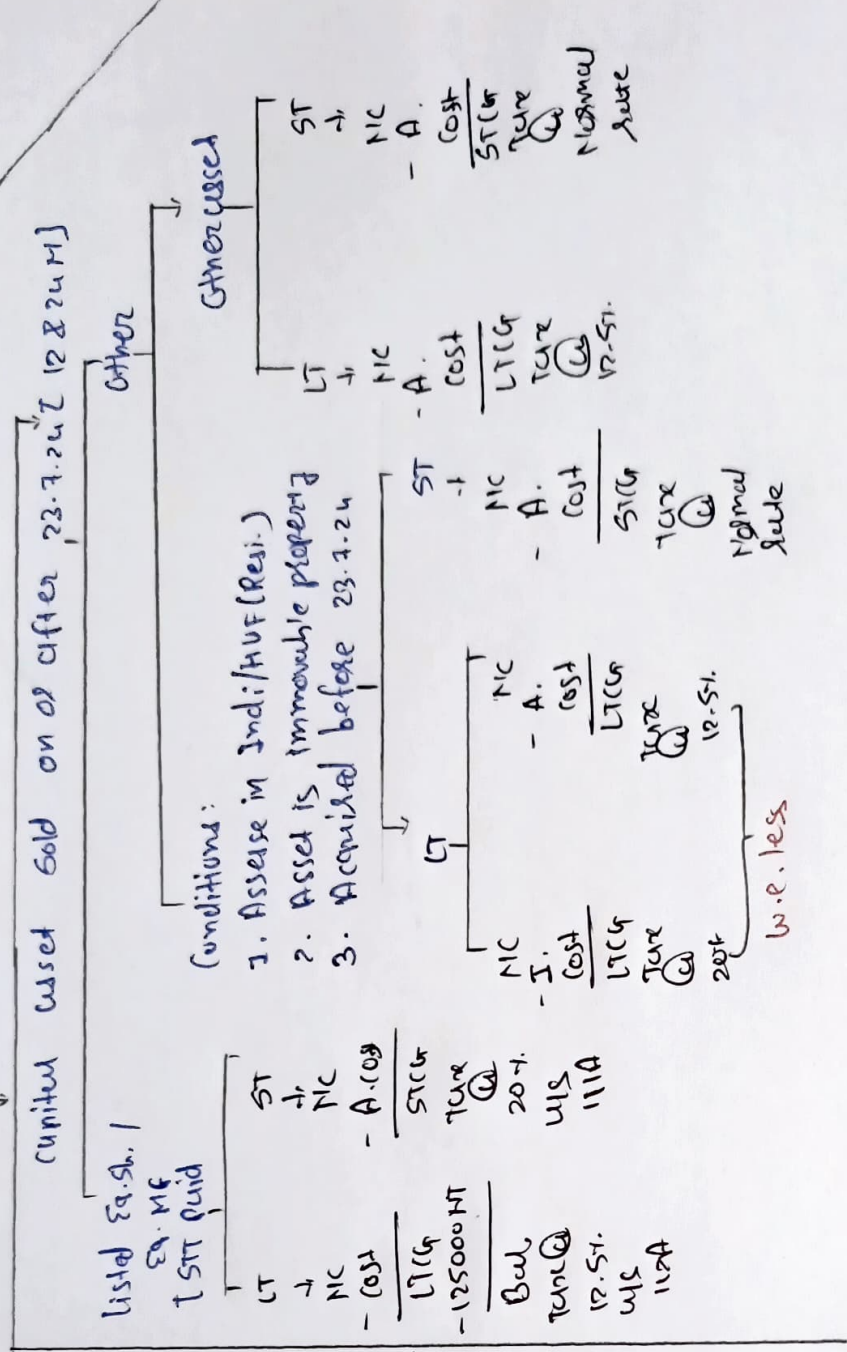 Capital asset sold on or after 23.7.24 [12 & 24 M]
Listed Eq. Sh. /
Eq. MF
[STT paid
LT
NC
- Cost
LTCG
-125000 NT
Bal
Tax @
12.5%
u/s
112A
ST
NC
- A. Cost
STCG
Tax
@
20%
u/s
111A
Other
Conditions:
1. Assesse in Indi/HUF (Resi.)
2. Asset is immovable property
3. Acquired before 23.7.24
LT
NC
- I.
Cost
LTCG
Tax
@
20%
NC
- A.
Cost
LTCG
Tax
@
12.5%
w.e. less
ST
NC
- A.
Cost
STCG
Tax
@
Normal
Rate
Other asset
LT
NC
- A.
Cost
LTCG
Tax
@
12.5%
ST
NC
- A.
Cost
STCG
Tax
@
Normal
Rate